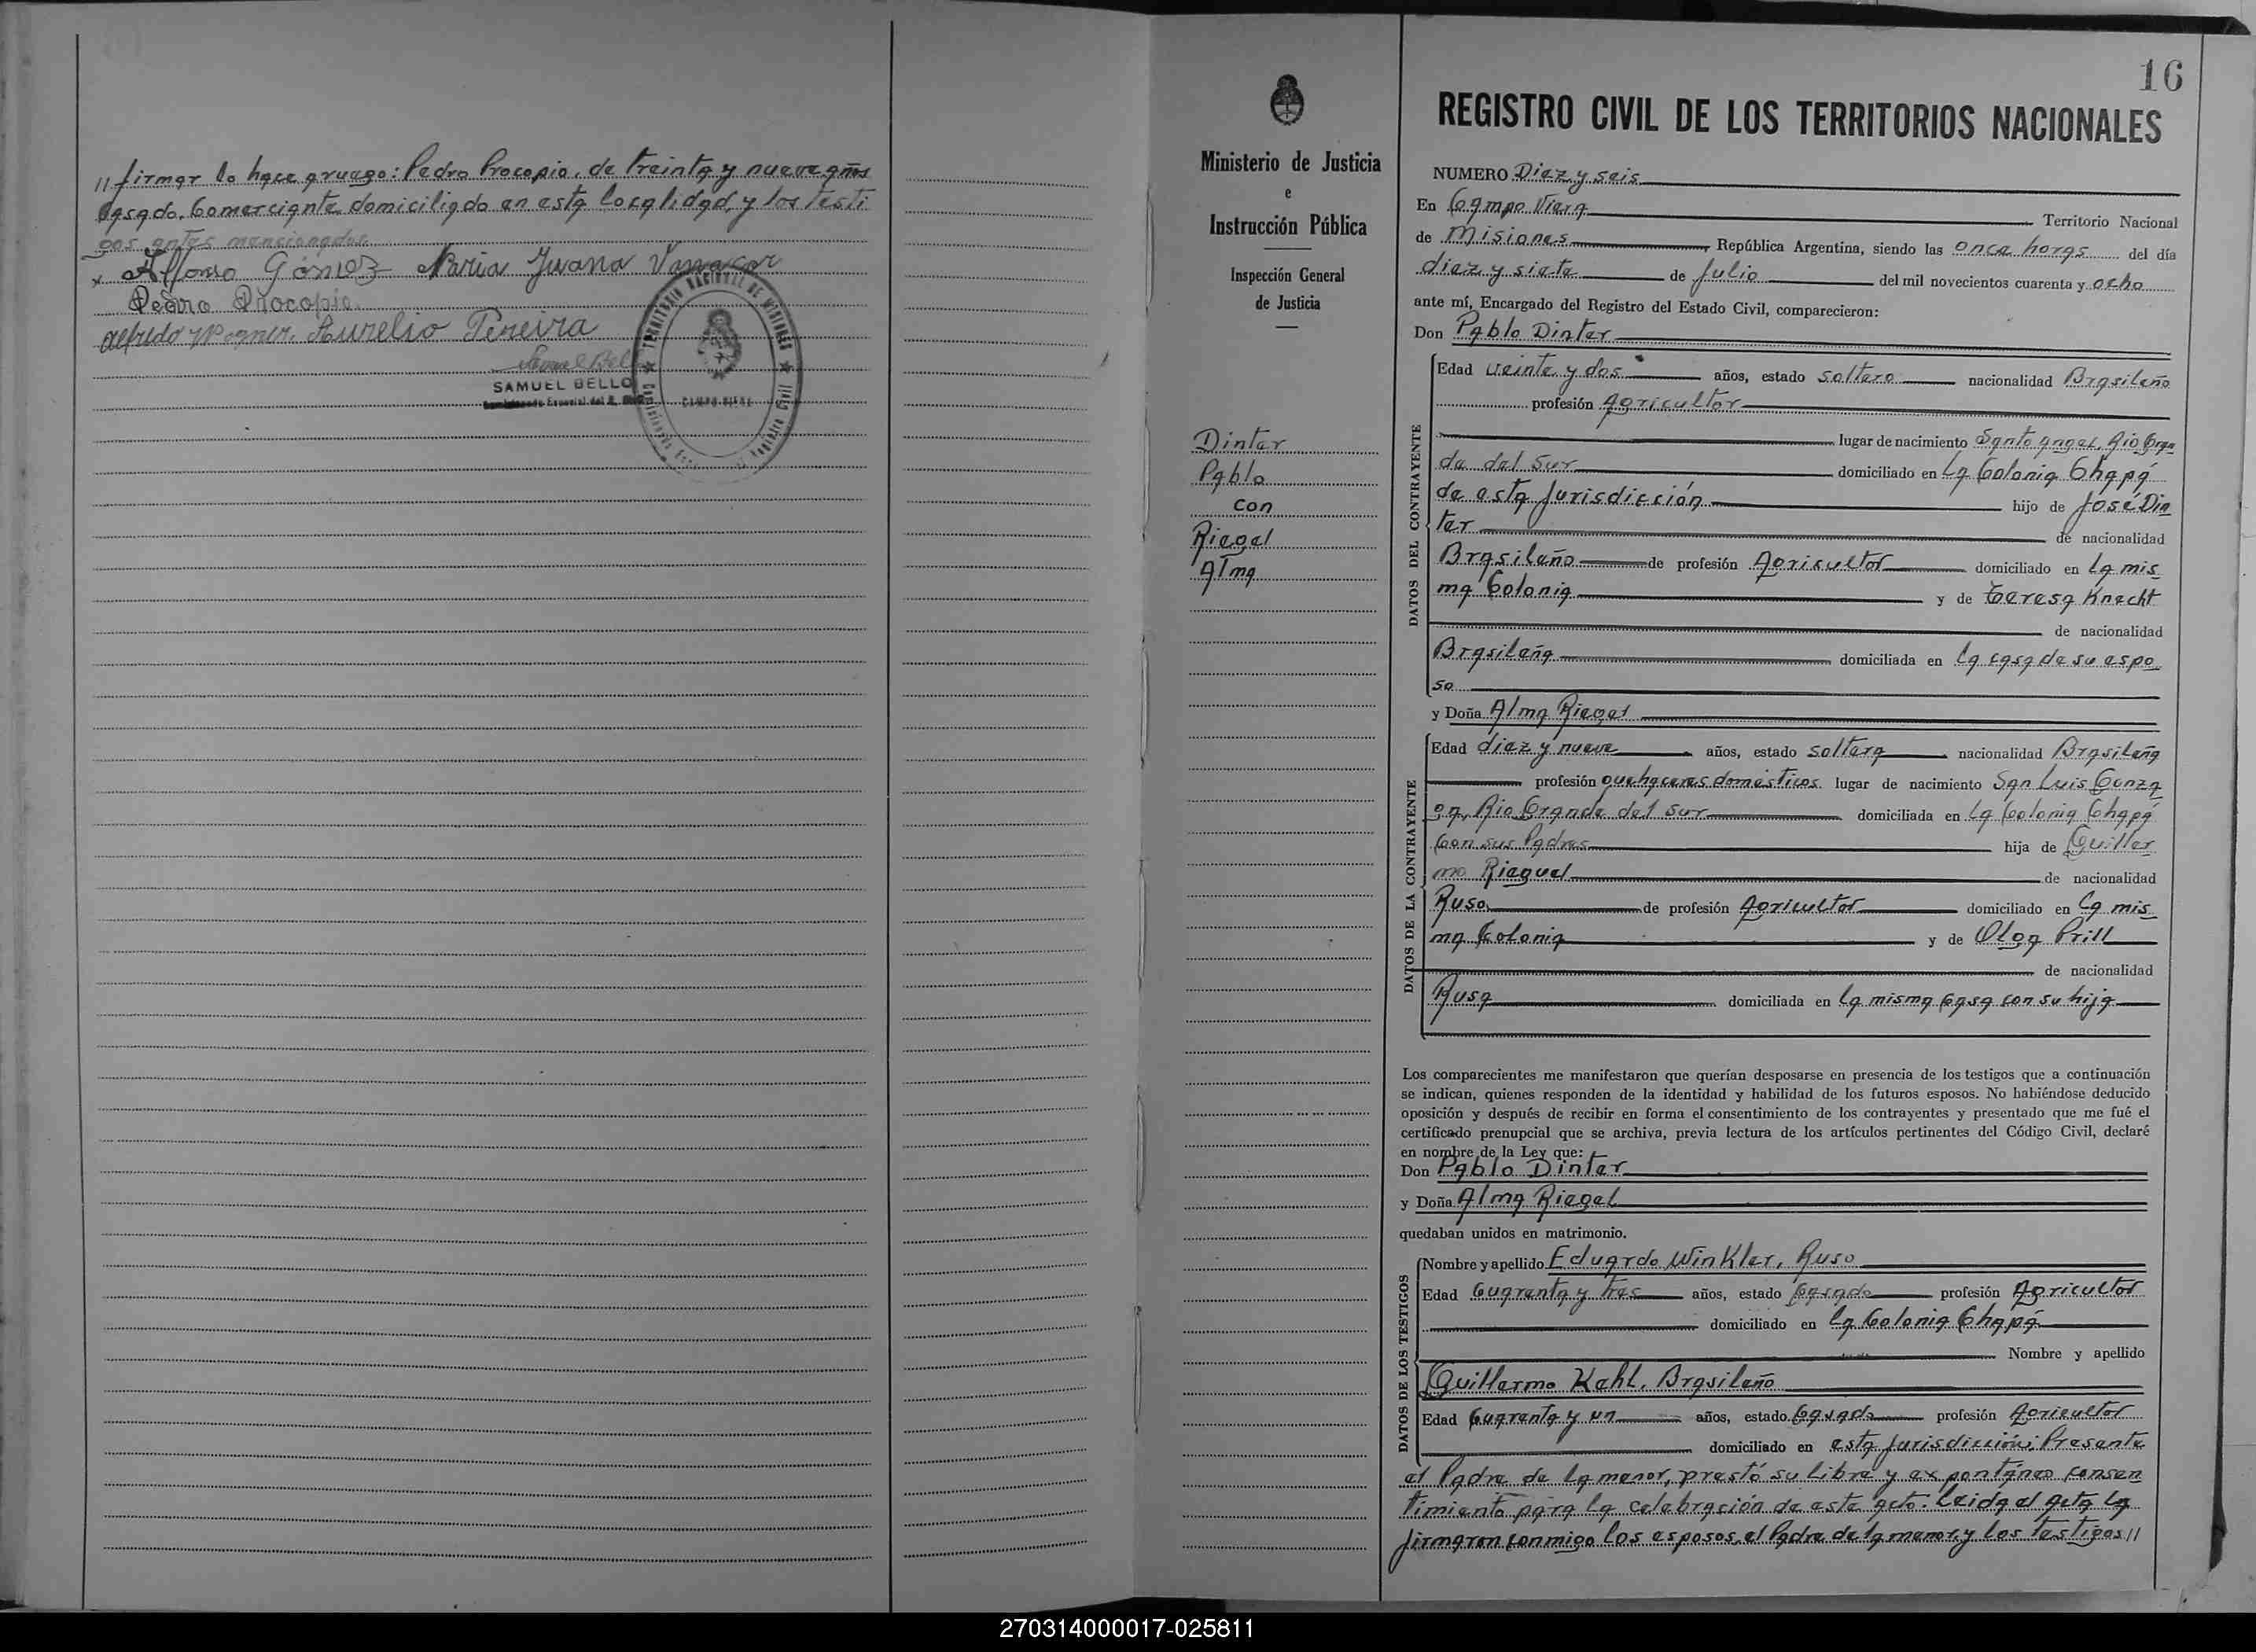 // firmar lo hace a ruego: Pedro Procopio, de treinta y nueve años
Casado, Comerciante domiciliado en esta localidad, y los testi
gos antes mencionados
x Alfonso Gómez Maria Juana
Pedro Procopio
Alfredo Wagner. Aurelio Pereira
SAMUEL BELLO
TERRITORIO NACIONAL DE MISIONES
CAMPO VIERA
Ministerio de Justicia
e
Instrucción Pública
Inspección General
de Justicia
Dinter
Pablo
con
Riegel
Alma
16
REGISTRO CIVIL DE LOS TERRITORIOS NACIONALES
NUMERO Diez y seis
En Campo Viera Territorio Nacional
de Misiones República Argentina, siendo las once horas del día
diez y siete de Julio del mil novecientos cuarenta y ocho
ante mí, Encargado del Registro del Estado Civil, comparecieron:
Don Pablo Dinter
DATOS DEL CONTRAYENTE
Edad veinte y dos años, estado soltero nacionalidad Brasileño
profesión Agricultor
lugar de nacimiento Santo Angel, Rio Gran
de del Sur domiciliado en La Colonia Chapá
de esta Jurisdicción hijo de José Din
ter de nacionalidad
Brasileño de profesión Agricultor domiciliado en La mis
ma Colonia y de Teresa Knecht
de nacionalidad
Brasileña domiciliada en La casa de su espo
so
y Doña Alma Riegel
DATOS DE LA CONTRAYENTE
Edad diez y nueve años, estado soltera nacionalidad Brasileña
profesión quehaceres domésticos lugar de nacimiento San Luis Gonza
ga, Rio Grande del Sur domiciliada en La Colonia Chapá
Con sus Padres hija de Guiller
mo Rieguel de nacionalidad
Ruso de profesión Agricultor domiciliado en La mis
ma Colonia y de Olga Prill
de nacionalidad
Rusa domiciliada en La misma Casa con su hija
Los comparecientes me manifestaron que querían desposarse en presencia de los testigos que a continuación
se indican, quienes responden de la identidad y habilidad de los futuros esposos. No habiéndose deducido
oposición y después de recibir en forma el consentimiento de los contrayentes y presentado que me fué el
certificado prenupcial que se archiva, previa lectura de los artículos pertinentes del Código Civil, declaré
en nombre de la Ley que:
Don Pablo Dinter
y Doña Alma Riegel
quedaban unidos en matrimonio.
DATOS DE LOS TESTIGOS
Nombre y apellido Eduardo Winkler, Ruso
Edad Cuarenta y tres años, estado Casado profesión Agricultor
domiciliado en La Colonia Chapá
Nombre y apellido
Guillermo Kehl, Brasileño
Edad Cuarenta y un años, estado Casado profesión Agricultor
domiciliado en esta Jurisdicción; Presente
el Padre de La menor, prestó su libre y expontáneo consen
timiento para la celebración de este acto. Leida el acta la
firmaron conmigo los esposos, el Padre de la menor, y los testigos //
270314000017-025811